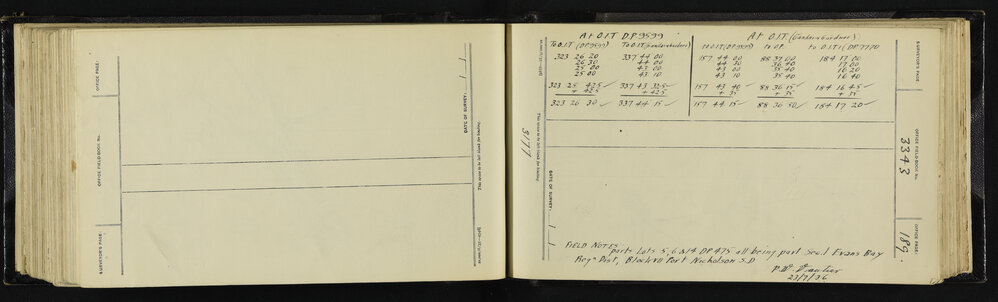 OFFICE PAGE:
OFFICE FIELD-BOOK No.
SURVEYOR'S PAGE:
DATE OF SURVEY:
/ /
This space to be left blank for binding.
At O.I.T D.P. 9599
At O.I.T (Gardner & Gardner)
To O.I.T (DP 9599) To O.I.T
To O.I.T (DP 9599) to O.P. to O.I.T (DP 7770
323 26 20 337 44 00 157 44 00 88 37 00 184 17 00
26 30 44 00 44 30 36 40 17 00
25 00 43 00 43 00 35 40 16 20
25 00 43 10 43 10 35 40 16 40
323 25 42.5 337 43 32.5 157 43 40 88 36 15 184 16 45
+ 42.5 + 42.5 + 35 + 35 + 35
323 26 30 337 44 15 157 44 15 88 36 50 184 17 20
3177
This space to be left blank for binding.
DATE OF SURVEY:
/ /
SURVEYOR'S PAGE:
OFFICE FIELD-BOOK No.
3343
OFFICE PAGE:
189.
FIELD NOTES
parts Lots 5, 6 & 14 DP 475 all being part Sec. 1 Evans Bay
Regn Dist, Block VII Port Nicholson S.D
23/7/36